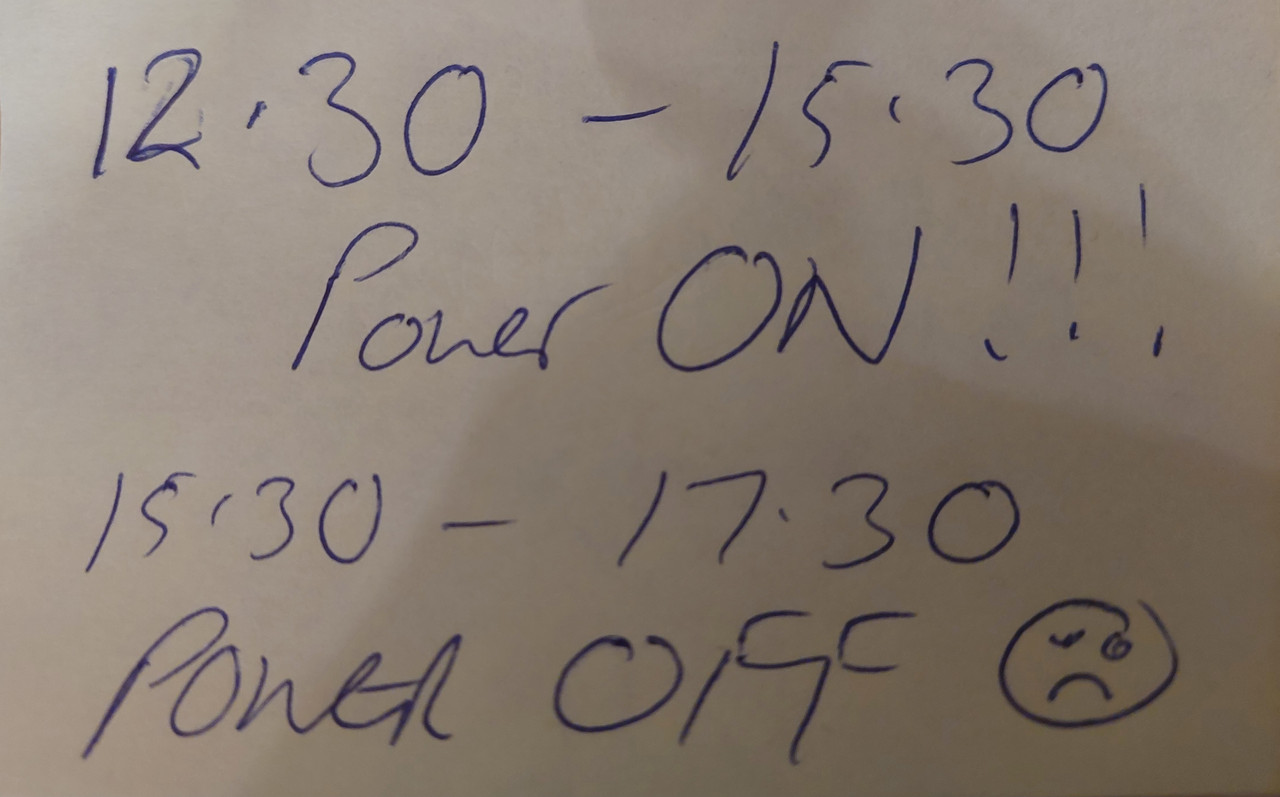 12.30 - 15.30
Power ON!!!
15.30 - 17.30
POWER OFF